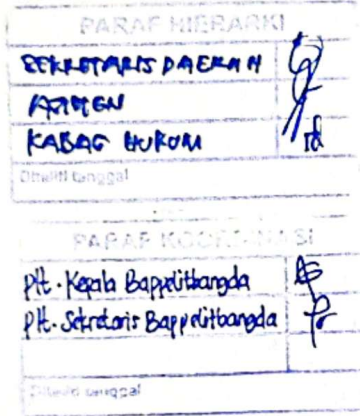 PARAF HIERARKI
SEKRETARIS DAERAH
ASMEN
KABAG HUKUM
Diteliti tanggal
PARAF KOORDINASI
Plt. Kepala Bappelitbangda
Plt. Sekretaris Bappelitbangda
Diteliti tanggal